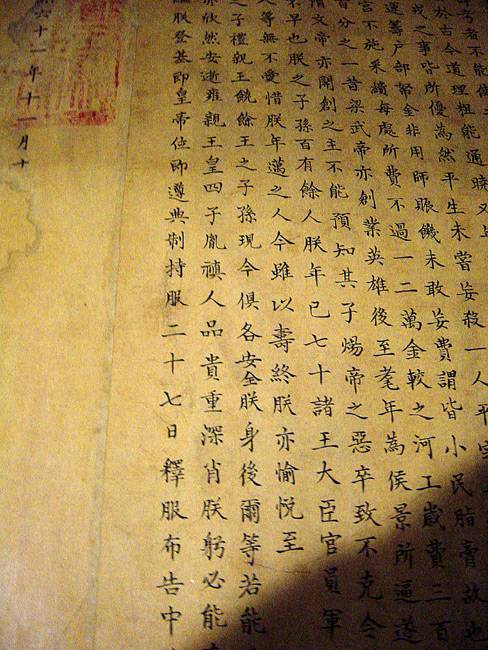 考者不能備
於古今道理粗能通曉又
戎之事皆所優為然平生未嘗妄殺一人平定
運籌戶部帑金非用師賑饑未敢妄費謂皆小民脂膏故也
宮不施采繢每處所費不過一二萬金較之河工歲費三百
百分之一昔梁武帝亦創業英雄後至耄年為侯景所逼遂
隋文帝亦開創之主不能預知其子煬帝之惡卒致不克令
不早也朕之子孫百有餘人朕年已七十諸王大臣官員軍
人等無不愛惜朕年邁之人今雖以壽終朕亦愉悅至
之子禮親王饒餘王之子孫現今俱各安全朕身後爾等若能
亦欣然安逝雍親王皇四子胤禛人品貴重深肖朕躬必能
繼朕登基即皇帝位即遵典制持服二十七日釋服布告中
六十一年十一月十